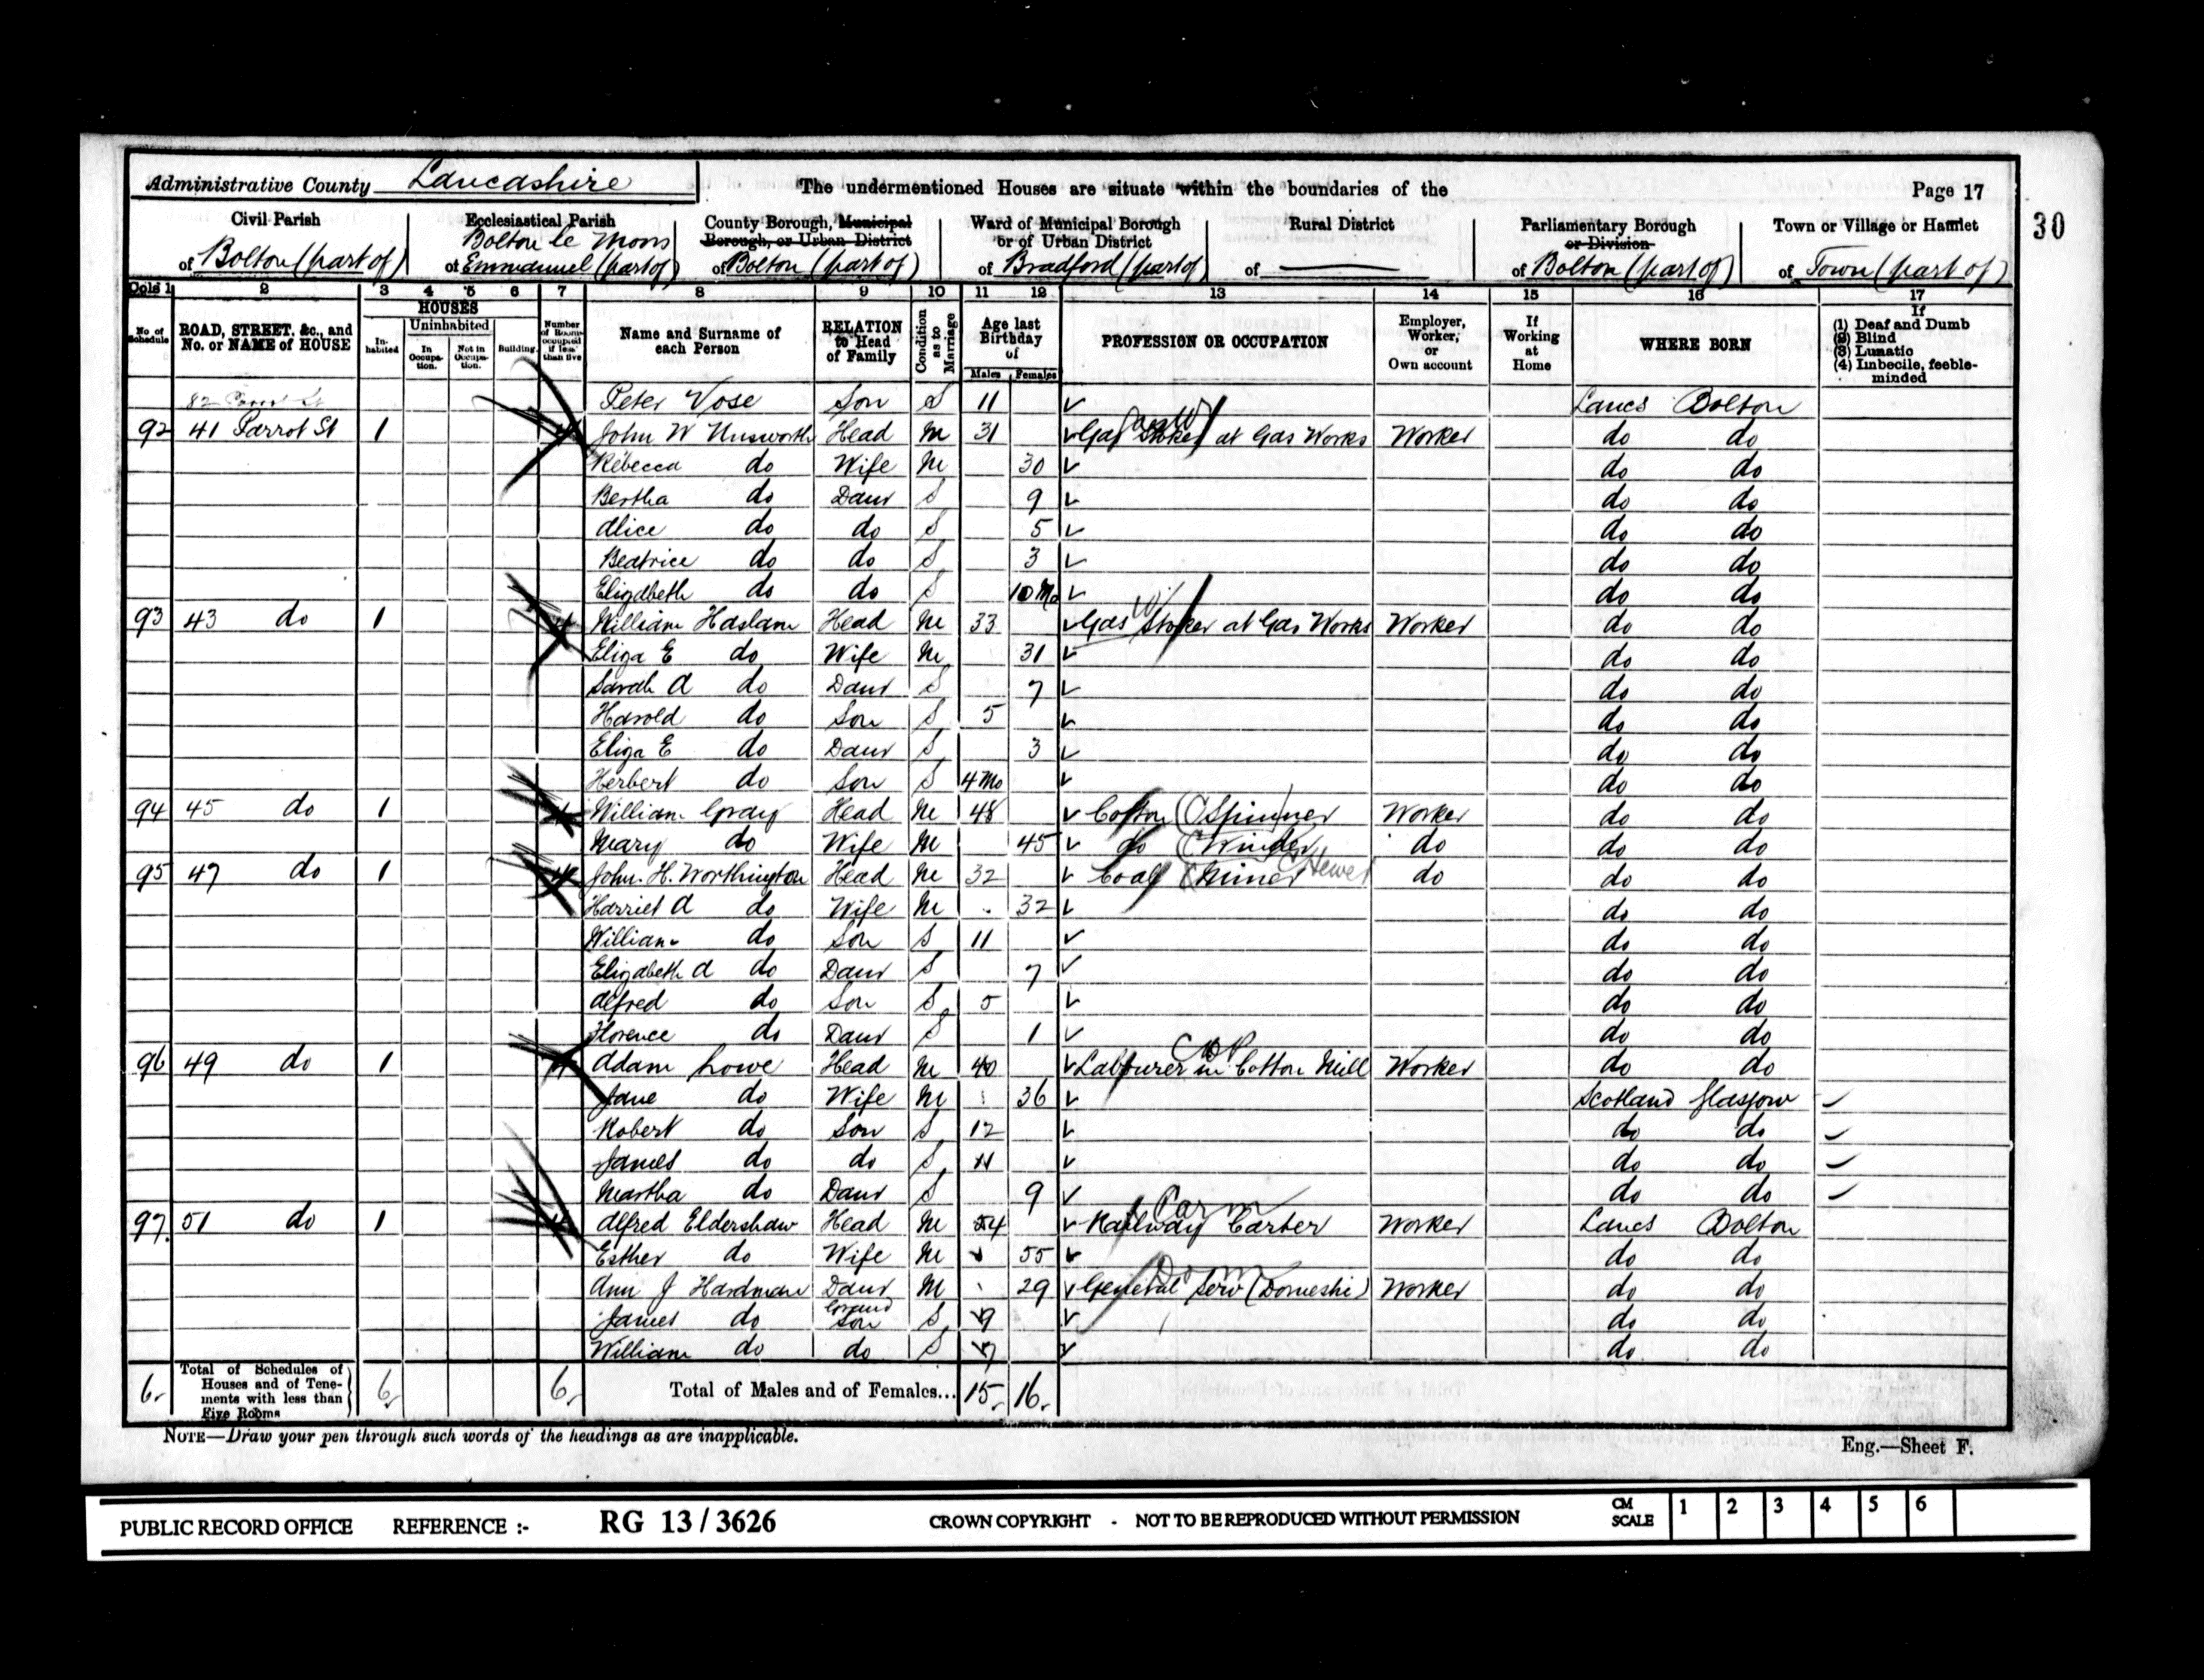 Administrative County Lancashire
The undermentioned Houses are situate within the boundaries of the
Page 17
30
Civil Parish of Bolton (part of)
Ecclesiastical Parish of Bolton le Moors Emmanuel (part of)
County Borough, Municipal Borough, or Urban District of Bolton (part of)
Ward of Municipal Borough or of Urban District of Bradford (part of)
Rural District of
Parliamentary Borough or Division of Bolton (part of)
Town or Village or Hamlet of Town (part of)
Cols 1 2 3 4 5 6 7 8 9 10 11 12 13 14 15 16 17
No. of Schedule
ROAD, STREET, &c., and No. or NAME of HOUSE
HOUSES
Inhabited
Uninhabited
In Occupation.
Not in Occupation.
Building.
Number of Rooms occupied if less than five
Name and Surname of each Person
RELATION to Head of Family
Condition as to Marriage
Age last Birthday of
Males Females
PROFESSION OR OCCUPATION
Employer, Worker, or Own account
If Working at Home
WHERE BORN
If
(1) Deaf and Dumb
(2) Blind
(3) Lunatic
(4) Imbecile, feeble-minded
82 Peter Vose Son S 11 Lancs Bolton
92 41 Parrot St 1 4 John W Unsworth Head M 31 Gas Stoker at Gas Works Worker do do
Rebecca do Wife M 30 do do
Bertha do Daur S 9 do do
Alice do do S 5 do do
Beatrice do do S 3 do do
Elizabeth do do S 10 Mo do do
93 43 do 1 4 William Haslam Head M 33 Gas Stoker at Gas Works Worker do do
Eliza E do Wife M 31 do do
Sarah A do Daur S 7 do do
Harold do Son S 5 do do
Eliza E do Daur S 3 do do
Herbert do Son S 4 Mo do do
94 45 do 1 4 William Gray Head M 48 Cotton Spinner Worker do do
Mary do Wife M 45 do Winder do do do
95 47 do 1 4 John. H. Worthington Head M 32 Coal Miner Hewer do do do
Harriet A do Wife M 32 do do
William do Son S 11 do do
Elizabeth A do Daur S 7 do do
Alfred do Son S 5 do do
Florence do Daur S 1 do do
96 49 do 1 4 Adam Lowe Head M 40 Labourer in Cotton Mill Worker do do
Jane do Wife M 36 Scotland Glasgow
Robert do Son S 12 do do
James do do S 11 do do
Martha do Daur S 9 do do
97 51 do 1 4 Alfred Eldershaw Head M 54 Railway Carter Worker Lancs Bolton
Esther do Wife M 55 do do
Ann J Hardman Daur M 29 General Serv (Domestic) Worker do do
James do Grand Son S 9 do do
William do do S 7 do do
6 Total of Schedules of Houses and of Tenements with less than Five Rooms 6 6 Total of Males and of Females... 15 16
NOTE—Draw your pen through such words of the headings as are inapplicable.
Eng.—Sheet F.
PUBLIC RECORD OFFICE REFERENCE :- RG 13 / 3626 CROWN COPYRIGHT - NOT TO BE REPRODUCED WITHOUT PERMISSION CM SCALE 1 2 3 4 5 6